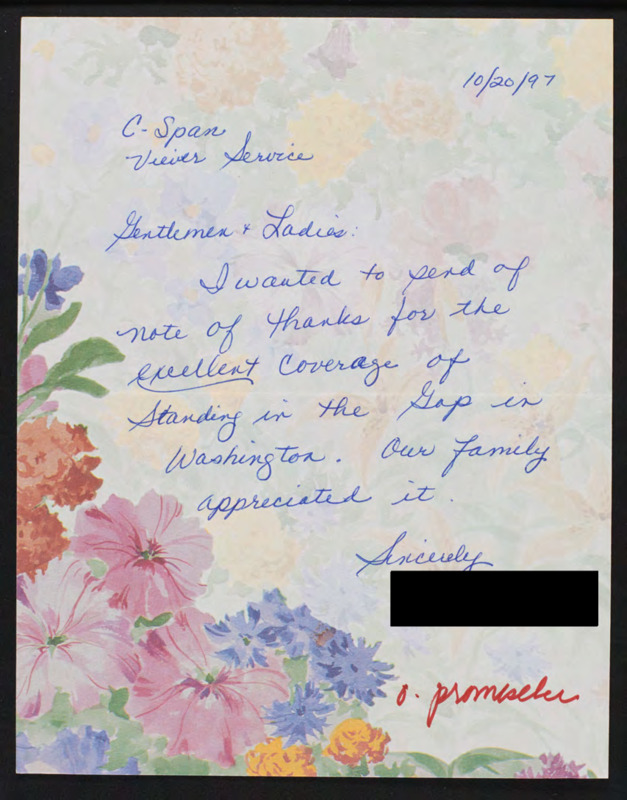 10/20/97
C-Span
Viewer Service
Gentlemen & Ladies:
I wanted to send of
note of thanks for the
excellent coverage of
Standing in the Gap in
Washington. Our family
appreciated it.
Sincerely